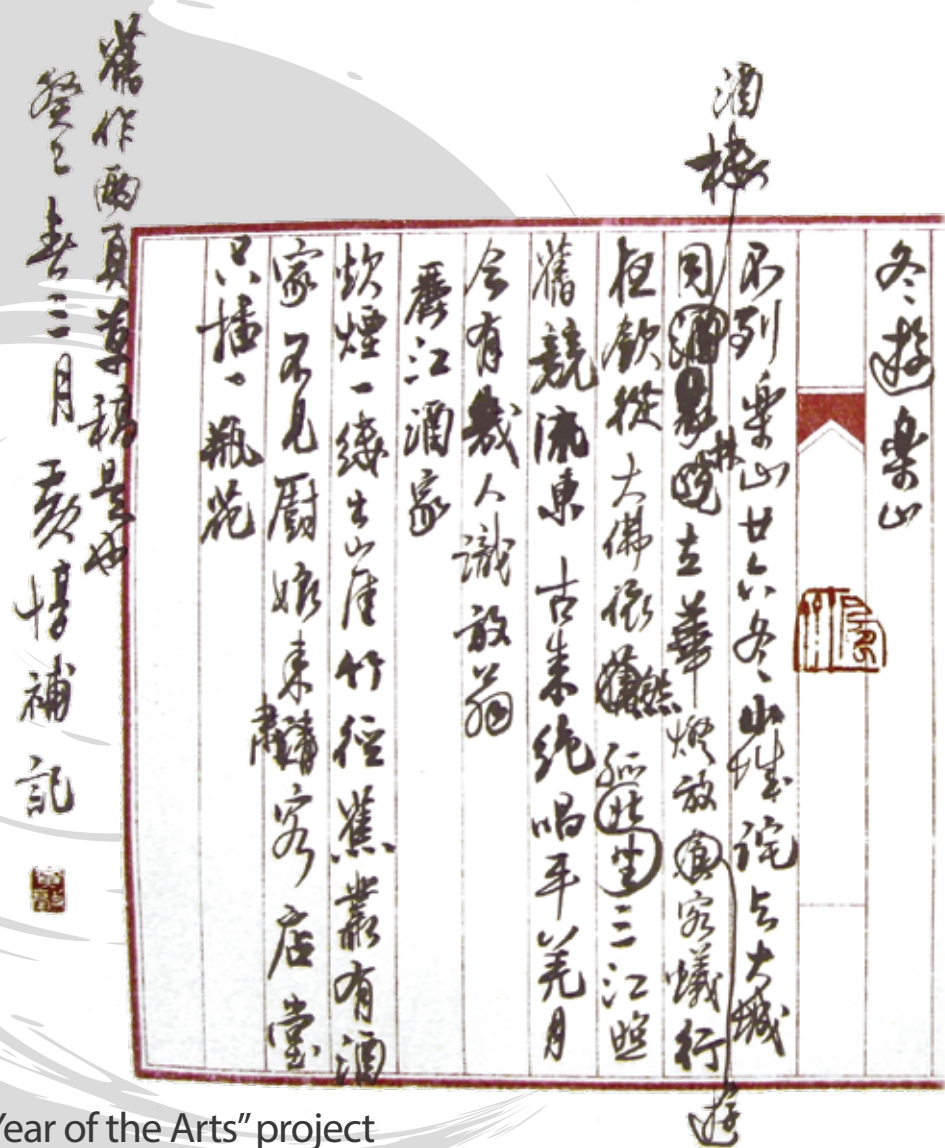 冬遊樂山
不到樂山廿六冬山城詫与大城
同酒樓林立華燈放遊客蟻行
狂歡從大佛依然孤坐三江照
舊競流東古來絶唱平羌月
今有幾人識放翁
麗江酒家
炊煙一縷出山崖竹徑蕉叢有酒
家不見廚娘來肅客店堂
只插一瓶花
舊作兩頁草稿是也
癸巳春三月黄惇補記
Year of the Arts" project